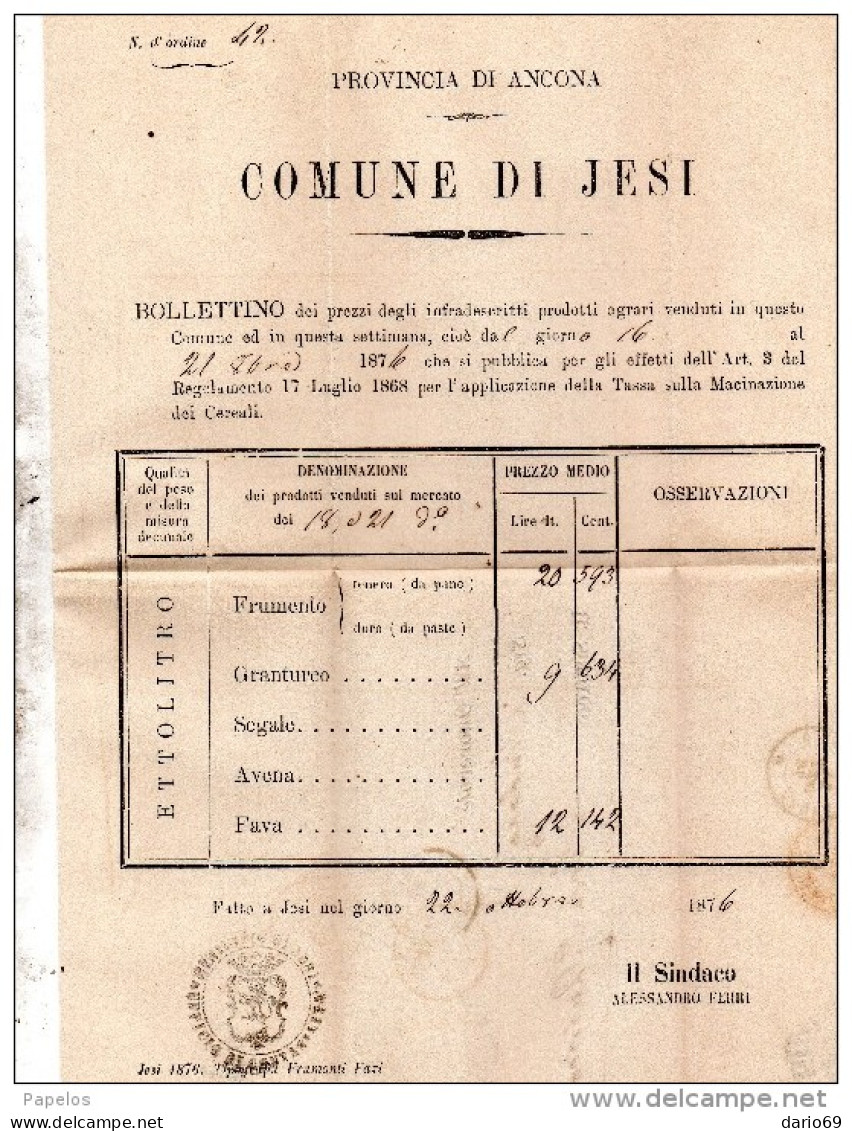 N. d'ordine 42.
PROVINCIA DI ANCONA
COMUNE DI JESI
BOLLETTINO dei prezzi degli infradescritti prodotti agrari venduti in questo
Comune ed in questa settimana, cioè dal giorno 16 al
21 1876 che si pubblica per gli effetti dell'Art. 3 del
Regolamento 17 Luglio 1868 per l'applicazione della Tassa sulla Macinazione
dei Cereali.
Qualità
del peso
e della
misura
decimale
DENOMINAZIONE
dei prodotti venduti sul mercato
dei 18, e 21 do
PREZZO MEDIO
Lire It. Cent.
OSSERVAZIONI
ETTOLITRO
Frumento
tenera (da pane) 20 593
dura (da paste)
Granturco . . . . . . . . . . 9 634
Segale. . . . . . . . . . . . .
Avena. . . . . . . . . . . . .
Fava . . . . . . . . . . . . . 12 142
Fatto a Jesi nel giorno 22. ottobre 1876
Il Sindaco
ALESSANDRO FERRI
Jesi 1876. Tipografia Framonti Fazi
Papelos
delcampe.net
dario69